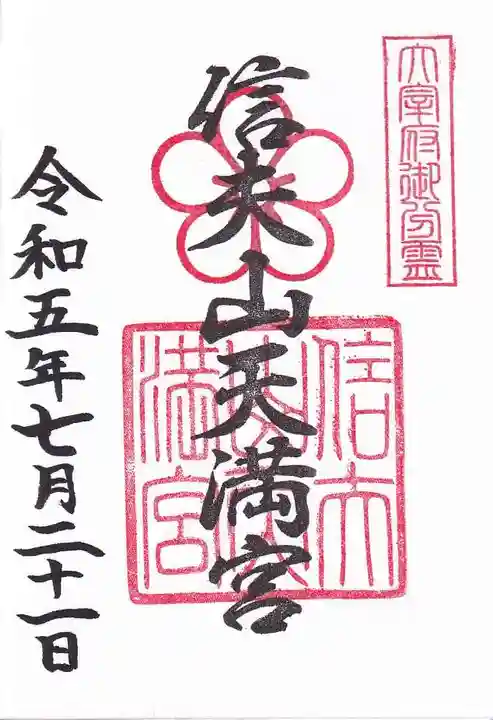 大宰府御分霊
信夫山天満宮
信夫
山天
満宮
令和五年七月二十一日